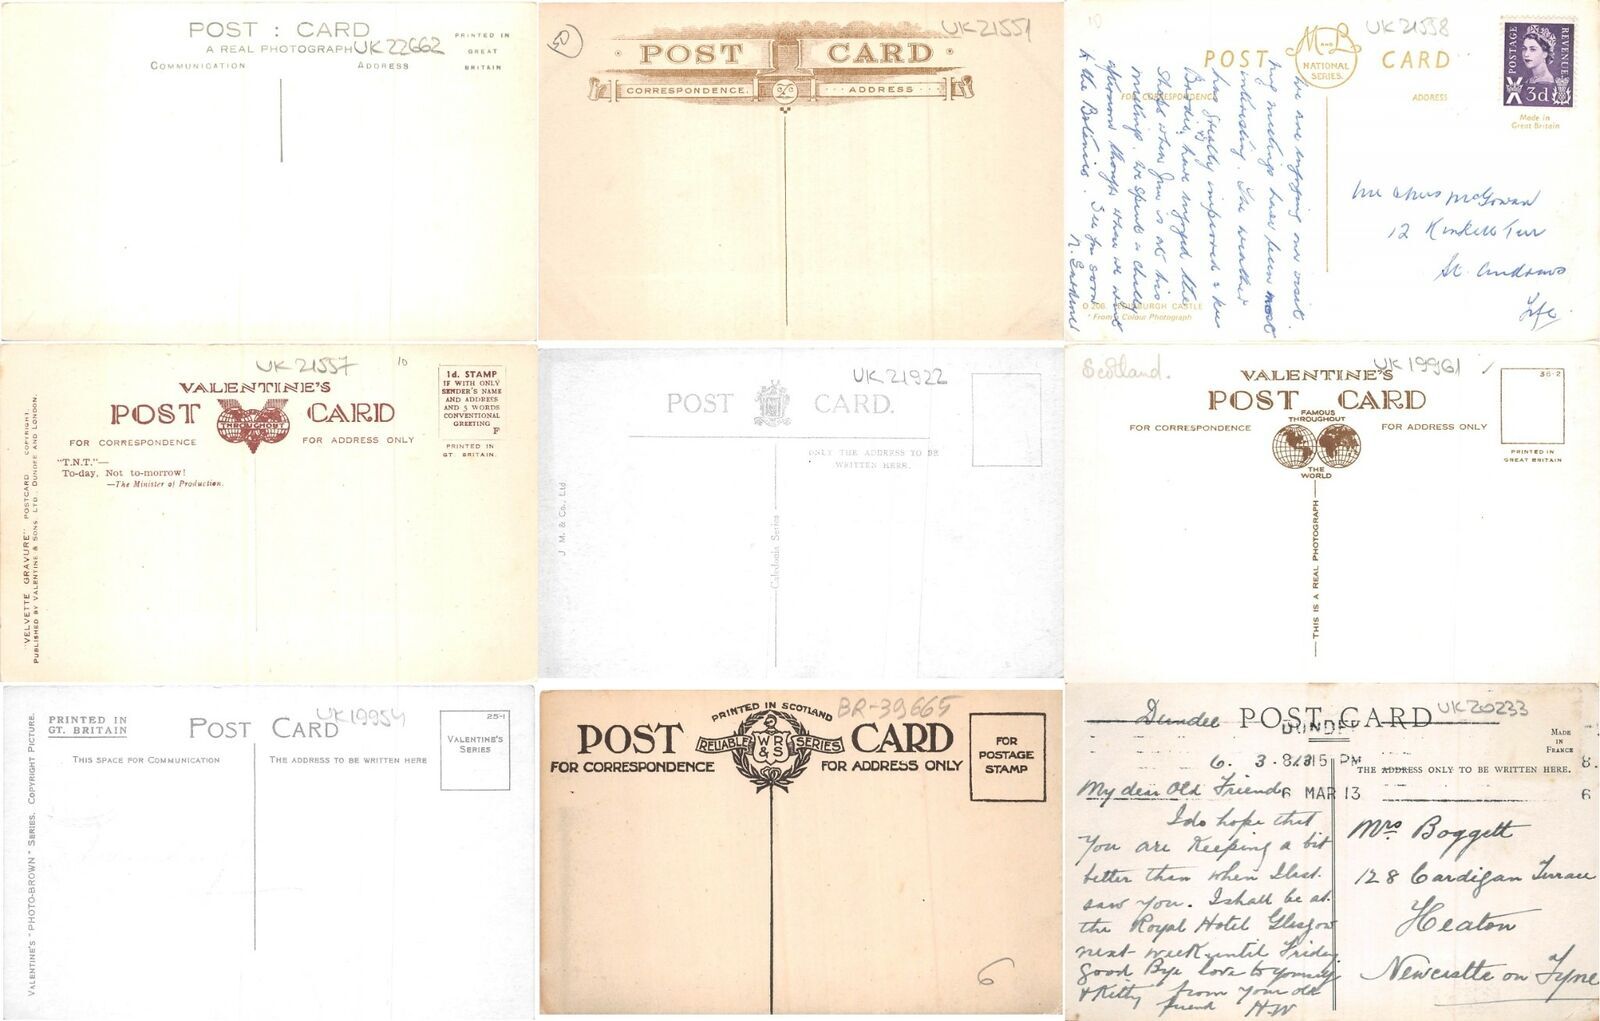 POST : CARD
A REAL PHOTOGRAPH
UK 22662
PRINTED IN
GREAT
BRITAIN
COMMUNICATION
ADDRESS
50
UK 21551
POST CARD
CORRESPONDENCE.
ADDRESS
10
UK 21558
POST CARD
M AND L
NATIONAL
SERIES.
FOR CORRESPONDENCE
ADDRESS
POSTAGE
REVENUE
3d
Made in
Great Britain
We are enjoying our visit.
my meetings have been most
interesting. The weather
has steadily improved &
have enjoyed this
when Jim is at his
meetings. We spent a chilly
afternoon when we went
to the Botanics. See you soon
N.
O 206. EDINBURGH CASTLE
From a Colour Photograph
Mr & Mrs McGowan
12 Kinkell Terr
St. Andrews
Fife.
UK 21557
10
VALENTINE'S
POST CARD
THROUGHOUT
FOR CORRESPONDENCE
FOR ADDRESS ONLY
1d. STAMP
IF WITH ONLY
SENDER'S NAME
AND ADDRESS
AND 5 WORDS
CONVENTIONAL
GREETING
F
PRINTED IN
GT. BRITAIN.
"T.N.T."—
To-day, Not to-morrow!
—The Minister of Production.
"VELVETTE GRAVURE" POSTCARD COPYRIGHT.
PUBLISHED BY VALENTINE & SONS. LTD., DUNDEE AND LONDON.
UK 21922
POST CARD.
ONLY THE ADDRESS TO BE
WRITTEN HERE.
J. M. & Co., Ltd.
Caledonia Series
Scotland.
UK 19961
VALENTINE'S
POST CARD
FAMOUS
THROUGHOUT
THE
WORLD
FOR CORRESPONDENCE
FOR ADDRESS ONLY
36-2
PRINTED IN
GREAT BRITAIN
THIS IS A REAL PHOTOGRAPH
PRINTED IN
GT. BRITAIN
POST CARD
UK 19954
25-1
VALENTINE'S
SERIES
THIS SPACE FOR COMMUNICATION
THE ADDRESS TO BE WRITTEN HERE
VALENTINE'S "PHOTO-BROWN" SERIES. COPYRIGHT PICTURE.
PRINTED IN SCOTLAND
BR-39665
POST CARD
RELIABLE WR&S SERIES
FOR CORRESPONDENCE
FOR ADDRESS ONLY
FOR
POSTAGE
STAMP
6
Dundee
POST CARD
UK 20233
DUNDEE
MADE
IN
FRANCE
THE ADDRESS ONLY TO BE WRITTEN HERE.
8.15 PM
6 MAR 13
8.
6
6. 3.
My dear Old Friend
I do hope that
you are keeping a bit
better than when I last
saw you. I shall be at
the Royal Hotel Glasgow
next week until Friday
Good Bye love to yourself
& Kitty from your old
friend H.W
Mrs Boggett
128 Cardigan Terrace
Heaton
Newcastle on Tyne